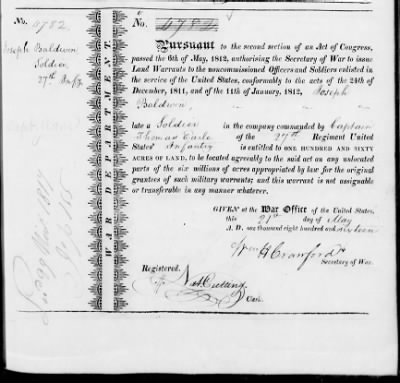 No. 4782
Joseph Baldwin
Soldier
27th Infy
WAR DEPARTMENT.
No. 4782
Pursuant to the second section of an Act of Congress,
passed the 6th of May, 1812, authorising the Secretary of War to issue
Land Warrants to the noncommissioned Officers and Soldiers enlisted in
the service of the United States, conformably to the acts of the 24th of
December, 1811, and of the 11th of January, 1812, Joseph
Baldwin,
late a Soldier in the company commanded by Captain
Thomas Earle of the 27th Regiment United
States' Infantry
is entitled to ONE HUNDRED AND SIXTY
ACRES OF LAND, to be located agreeably to the said act on any unlocated
parts of the six millions of acres appropriated by law for the original
grantees of such military warrants; and this warrant is not assignable
or transferable in any manner whatever.
GIVEN at the War Office of the United States,
this 21st day of May
A. D. one thousand eight hundred and sixteen
Wm H Crawford
Secretary of War.
Registered.
Nat Cutting
Clerk.